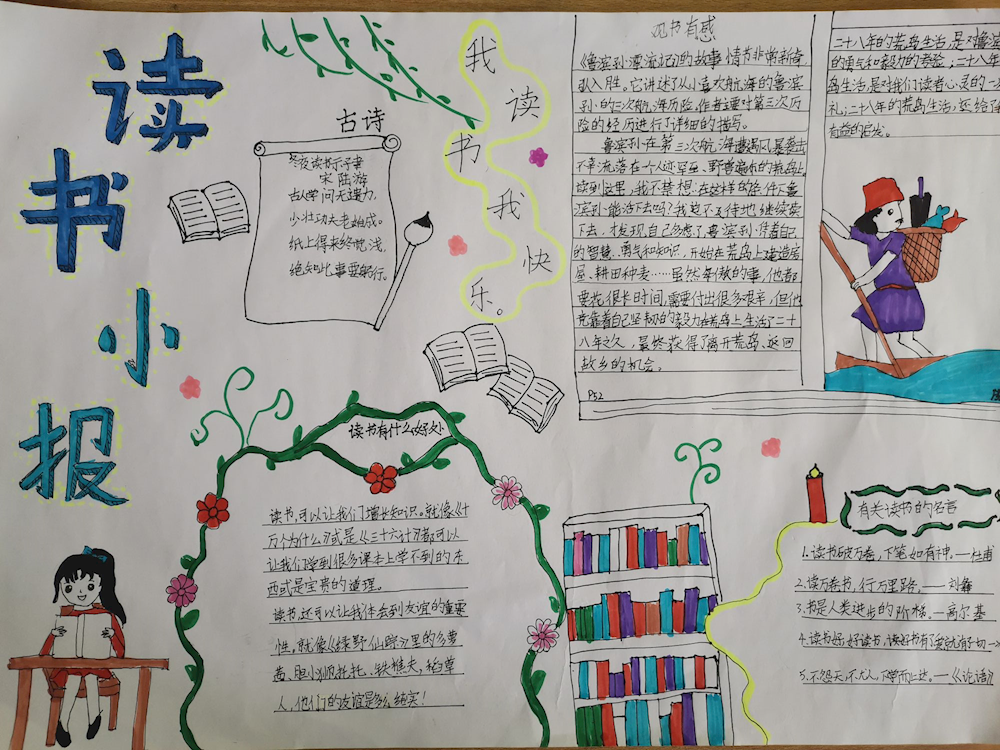 读书小报
古诗
冬夜读书示子聿
宋 陆游
古人学问无遗力,
少壮功夫老始成。
纸上得来终觉浅,
绝知此事要躬行。
我读书我快乐。
观书有感
《鲁滨孙漂流记》的故事情节非常新奇
引人胜。它讲述了从小喜欢航海的鲁滨
孙的三次航海历险,作者主要对第三次历
险的经历进行了详细的描写。
鲁滨孙在第三次航海遭遇风暴袭击
不幸流落在个人迹罕至、野兽遍布的荒岛上
读到这里,我不禁想:在这样的条件下鲁
滨孙能活下去吗?我迫不及待地继续读
下去,才发现自己多虑了鲁滨孙凭着自己
的智慧、勇气和知识,开始在荒岛上建造房
屋、耕田种麦……虽然每做的事,他都
要花很长时间,需要付出很多艰辛,但他
凭靠着自己坚韧的毅力在荒岛上生活了二十
八年之久,最终获得了离开荒岛、返回
故乡的机会。
P52
二十八年的荒岛生活,是对鲁滨
的勇气和毅力的考验,二十八年
岛生活是对我们读者心灵的一次
礼;二十八年的荒岛生活,还给了
有益的启发。
读书有什么好处
读书,可以让我们增长知识。就像《十
万个为什么》或是《三十六计》都可以
让我们学到很多课本上学不到的东
西或是宝贵的道理。
读书,还可以让我们体会到友谊的重要
性,就像《绿野仙踪》里的多萝
茜、胆小狮托托、铁樵夫、稻草
人,他们的友谊是多么纯实!
有关读书的名言
1.读书破万卷,下笔如有神。—杜甫
2.读万卷书,行万里路。——刘彝
3.书是人类进步的阶梯。—高尔基
4.读书好,好读书,读好书有了
5.不怨天,不尤人,下学而上达。—《论语》